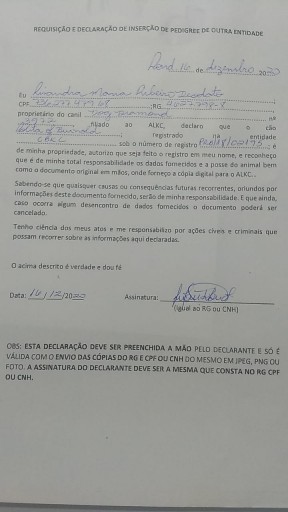 REQUISIÇÃO E DECLARAÇÃO DE INSERÇÃO DE PEDIGREE DE OUTRA ENTIDADE
14 de dezembro 20
Eu Maria Ribeiro
CPF ;RG
proprietário do canil nº
filiado ao ALKC, declaro que o cão
registrado na entidade
CBKC sob o número de registro ; é
de minha propriedade, autorizo que seja feito o registro em meu nome, e reconheço
que é de minha total responsabilidade os dados fornecidos e a posse do animal bem
como o documento original em mãos, onde forneço a cópia digital para o ALKC..
Sabendo-se que quaisquer causas ou consequências futuras recorrentes, oriundos por
informações deste documento fornecido, serão de minha responsabilidade. E que ainda,
caso ocorra algum desencontro de dados fornecidos o documento poderá ser
cancelado.
Tenho ciência dos meus atos e me responsabilizo por ações cíveis e criminais que
possam recorrer sobre as informações aqui declaradas.
O acima descrito é verdade e dou fé
Data: 14/12/2020 Assinatura:
(igual ao RG ou CNH)
OBS: ESTA DECLARAÇÃO DEVE SER PREENCHIDA A MÃO PELO DECLARANTE E SÓ É
VÁLIDA COM O ENVIO DAS CÓPIAS DO RG E CPF OU CNH DO MESMO EM JPEG, PNG OU
FOTO. A ASSINATURA DO DECLARANTE DEVE SER A MESMA QUE CONSTA NO RG CPF
OU CNH.